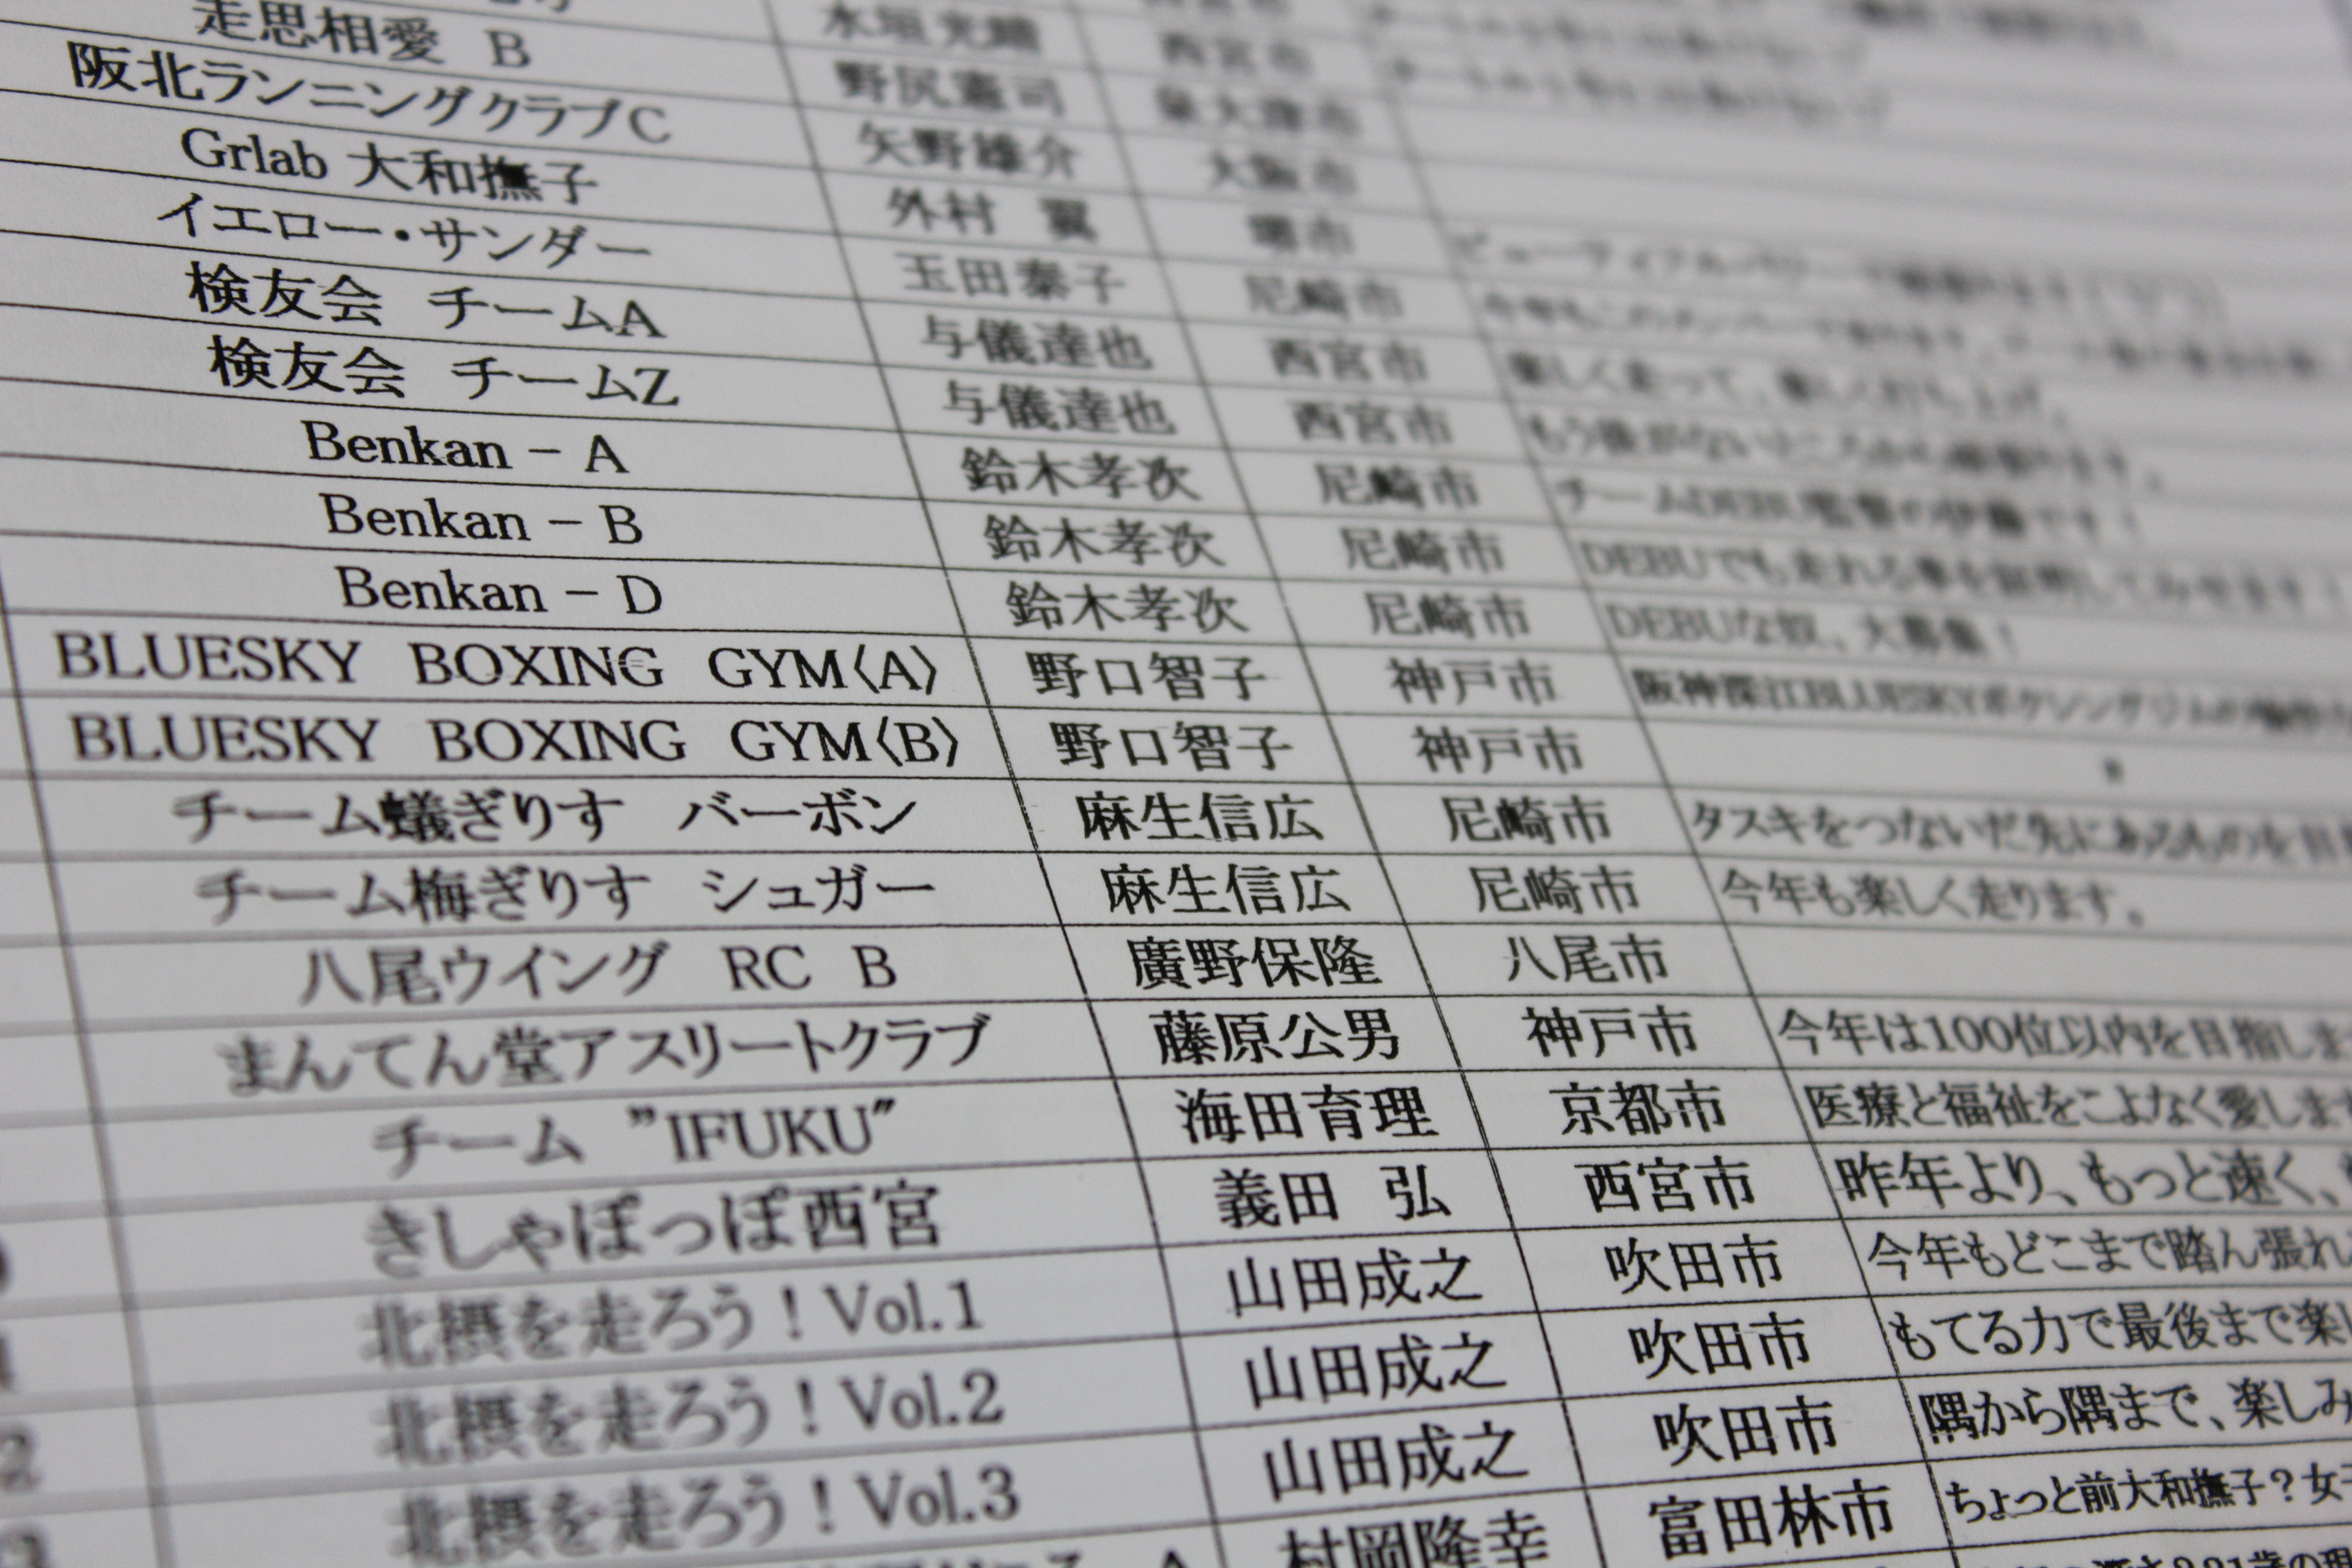 走思相愛 B 野尻憲司 泉大津市
阪北ランニングクラブC 矢野雄介 大阪市
Grlab 大和撫子 外村 翼 堺市
イエロー・サンダー 玉田泰子 尼崎市
検友会 チームA 与儀達也 西宮市 楽しく走って、楽しく打ち上げ。
検友会 チームZ 与儀達也 西宮市
Benkan － A 鈴木孝次 尼崎市
Benkan － B 鈴木孝次 尼崎市 DEBUでも走れる事を証明してみせます！
Benkan － D 鈴木孝次 尼崎市 DEBUな奴、大募集！
BLUESKY BOXING GYM〈A〉 野口智子 神戸市 阪神深江BLUESKYボクシングジムの
BLUESKY BOXING GYM〈B〉 野口智子 神戸市
チーム蟻ぎりす バーボン 麻生信広 尼崎市 タスキをつないだ先にあるものを目
チーム梅ぎりす シュガー 麻生信広 尼崎市 今年も楽しく走ります。
八尾ウイング RC B 廣野保隆 八尾市
まんてん堂アスリートクラブ 藤原公男 神戸市 今年は100位以内を目指しま
チーム ”IFUKU” 海田育理 京都市 医療と福祉をこよなく愛しま
きしゃぽっぽ西宮 義田 弘 西宮市 昨年より、もっと速く、
北摂を走ろう！Vol.1 山田成之 吹田市 今年もどこまで踏ん張れ
北摂を走ろう！Vol.2 山田成之 吹田市 もてる力で最後まで楽し
北摂を走ろう！Vol.3 山田成之 吹田市 隅から隅まで、楽しみ
村岡隆幸 富田林市 ちょっと前大和撫子？女子